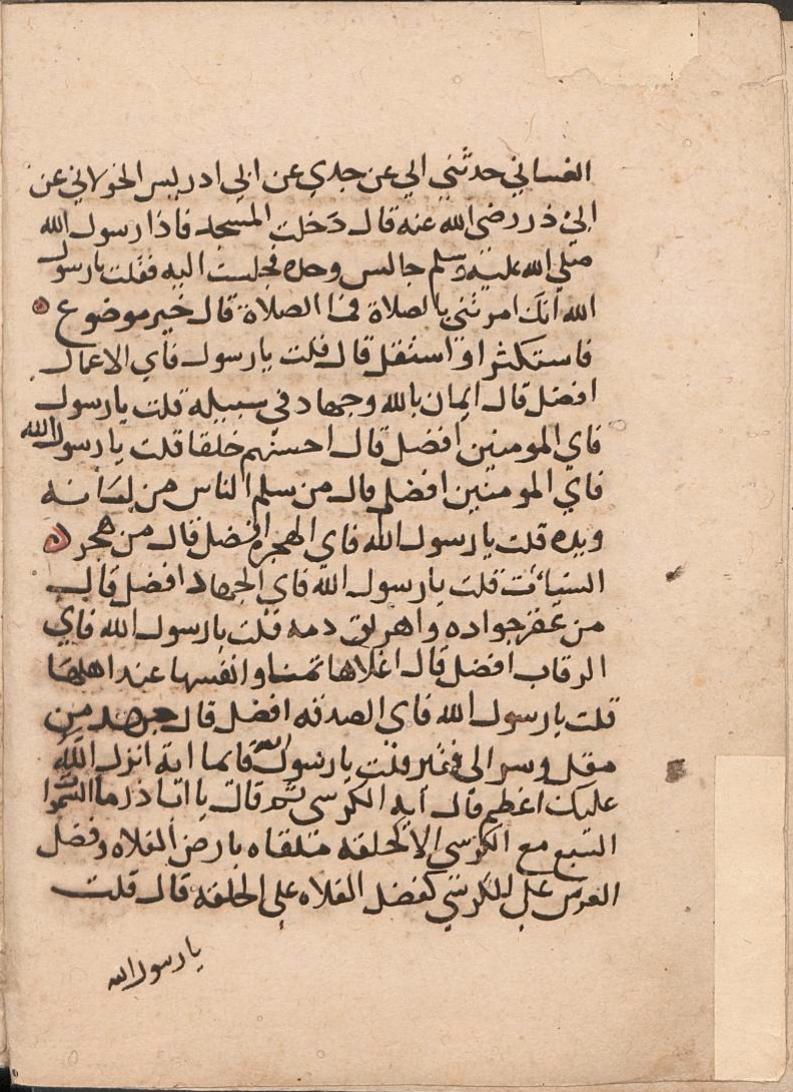 الغساني حدثني ابي عن جدي عن ابي ادريس الخولاني عن
ابي ذر رضي الله عنه قال دخلت المسجد فاذا رسول الله
صلي الله عليه وسلم جالس وحده فجلست اليه فقلت يارسول
الله انك امرتني بالصلاة فما الصلاة قال خير موضوع
فاستكثر او استقل قال قلت يارسول فاي الاعمال
افضل قال ايمان بالله وجهاد في سبيله قلت يارسول
فاي المومنين افضل قال احسنهم خلقا قلت يا رسول الله
فاي المومنين افضل قال من سلم الناس من لسانه
ويده قلت يا رسول الله فاي الهجرة افضل قال من هجر
السيات قلت يا رسول الله فاي الجهاد افضل قال
من عقر جواده واهريق دمه قلت يا رسول الله فاي
الرقاب افضل قال اغلاها ثمنا وانفسها عند اهلها
قلت يا رسول الله فاي الصدقه افضل قال جهد من
مقل وسر الي فقير قلت يا رسول الله فايما اية انزل الله
عليك اعظم قال اية الكرسي ثم قال يا اباذر ما السموا
السبع مع الكرسي الا كحلقه ملقاه بارض الفلاه وفضل
العرش علي الكرسي كفضل الفلاه علي الحلقه قال قلت
يا رسول الله